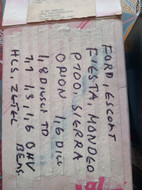 FORD, ESCORT
FIESTA, MONDEO
P100, SIERRA
ORION 1,6 DIEC
1,8 DIESEL TD
1,1 1,3 1,6 OHV
HCS, ZETEC
BENS.